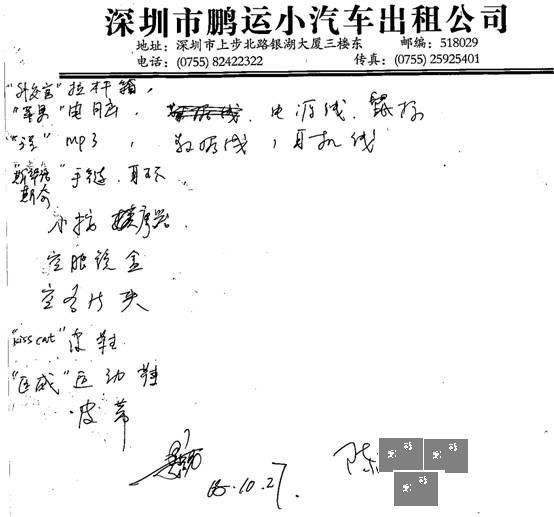 深圳市鹏运小汽车出租公司
地址:深圳市上步北路银湖大厦三楼东 邮编:518029
电话:(0755) 82422322 传真:(0755) 25925401
"外交官"拉杆箱,
"苹果"电脑, 电源线、鼠标
mp3, 数据线,耳机线
手链、耳环
空眼镜盒
空名片夹
"kiss cat"皮鞋
"匹威"运动鞋
皮带
05.10.27.
陈